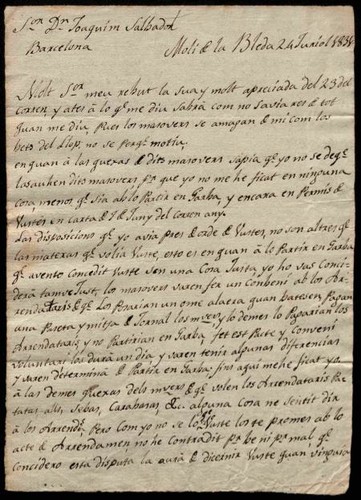 Sor. Dn. Joaquim Salbador
Barcelona
Moli de la Bleda 24 Juriol 183
Molt Sor. meu rebut la sua y molt apreciada del 23 del
Corren y ates à lo qe. me diu Sabrà com no Savia res de tot
quan me diu pues los masovers se amagan de mi com los
bets del Llop, no se perqe. motiu,
en quan à las queras de dits masovers sapia qe. yo no se de qe.
dits masovers pr. que yo no me he ficat en ninguna
Cosa menos qe. Sia ab lo Partir en Garba, y encara en Permis de
Vustes en carta de de Juny del corren any.
Las disposicions qe. yo avia pres de orde de Vustes, no son altres qe.
las materas qe. volia Vuste, esto es en quan à lo Partir en Garba
qe. avent concedit Vuste sen una Cosa Justa, yo ho vas Conci
derà tamve Just, lo masovers varen fer un Conbeni ab los Arrendataris
de qe. Los Posarian un ome alaera quan bateses, Pagan
una Paceta y mitja de Jornal los mvers y lo demes lo Pagarian los
Arrendataris, y no Partirian en Garba, fet est Pacte y Conveni
voluntari los durà un dia y varen tenir algunas diferencias
y varen determinà de Partir en Garba, fins aqui me he ficat yo
à las demes queras dels mvers es qe. volen los Arrendataris Pa
tatas, alls, Sebas, Carabasas, &c. alguna Cosa ne Sentit dir
à los Arrendrs. Pero Com yo no se lo qe. Vuste los te promes ab lo
acte de Arrendamen, no he Contradit pr. be ni pr. mal qe.
Concidero esta disputa la aurà de dicidir Vuste quan vinga